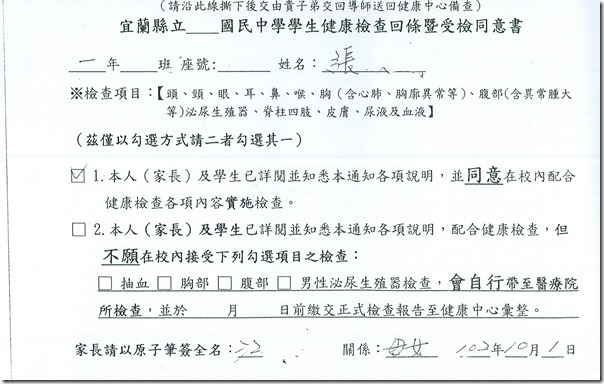 (請沿此線撕下後交由貴子弟交回導師送回健康中心備查)
宜蘭縣立____國民中學學生健康檢查回條暨受檢同意書
一 年____班 座號:____ 姓名: 張
※檢查項目:【頭、頸、眼、耳、鼻、喉、胸(含心肺、胸廓異常等)、腹部(含異常腫大
等)泌尿生殖器、脊柱四肢、皮膚、尿液及血液】
(茲僅以勾選方式請二者勾選其一)
☑ 1.本人(家長)及學生已詳閱並知悉本通知各項說明,並同意在校內配合
健康檢查各項內容實施檢查。
□ 2.本人(家長)及學生已詳閱並知悉本通知各項說明,配合健康檢查,但
不願在校內接受下列勾選項目之檢查:
□ 抽血 □ 胸部 □ 腹部 □ 男性泌尿生殖器檢查,會自行帶至醫療院
所檢查,並於 月 日前繳交正式檢查報告至健康中心彙整。
家長請以原子筆簽全名: 關係:母女 102年10月1日